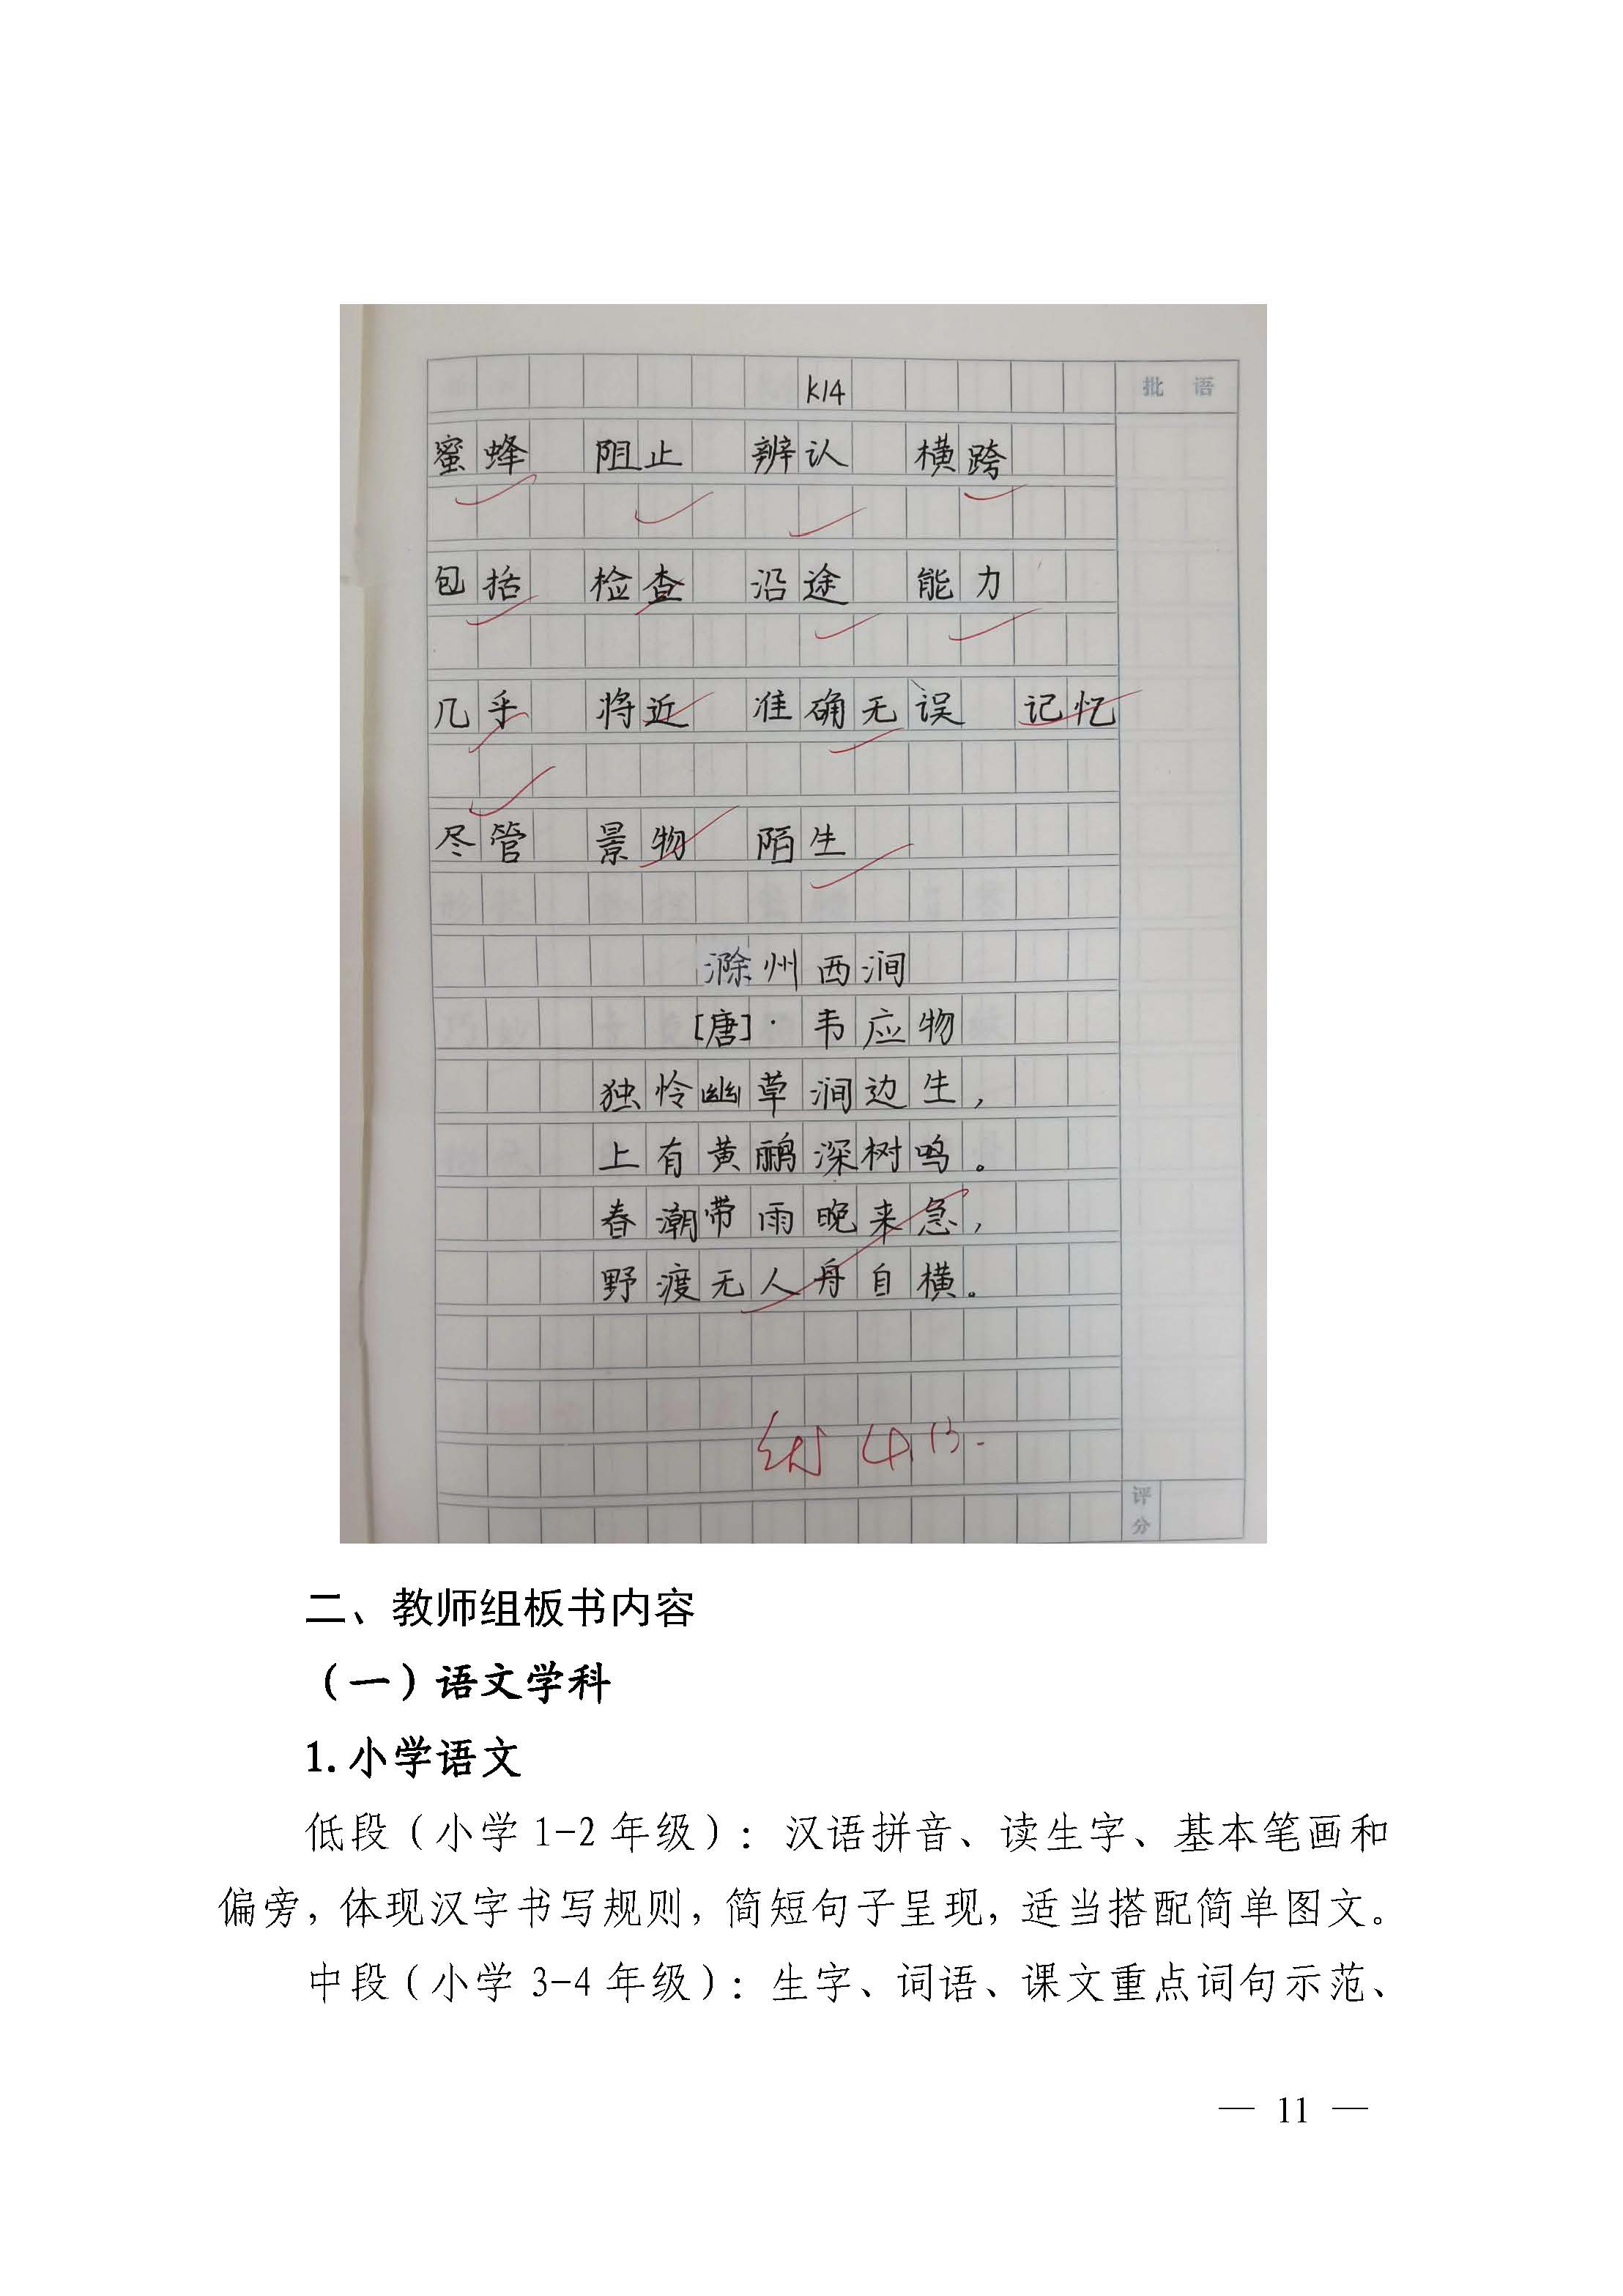 K14
批 语
蜜蜂 阻止 辨认 横跨
包括 检查 沿途 能力
几乎 将近 准确无误 记忆
尽管 景物 陌生
滁州西涧
[唐]· 韦应物
独怜幽草涧边生，
上有黄鹂深树鸣。
春潮带雨晚来急，
野渡无人舟自横。
评分
二、教师组板书内容
（一）语文学科
1.小学语文
低段（小学1-2年级）：汉语拼音、读生字、基本笔画和
偏旁，体现汉字书写规则，简短句子呈现，适当搭配简单图文。
中段（小学3-4年级）：生字、词语、课文重点词句示范、
— 11 —